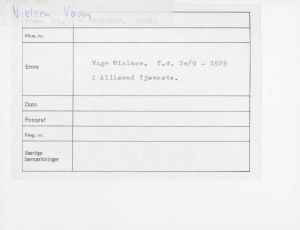 Nielsen Vagn
Mus.nr.
Emne
Vagn Nielsen, f.d. 20/9 - 1925
i Allieret Tjeneste.
Dato
Fotograf
Neg. nr.
Særlige
bemærkninger